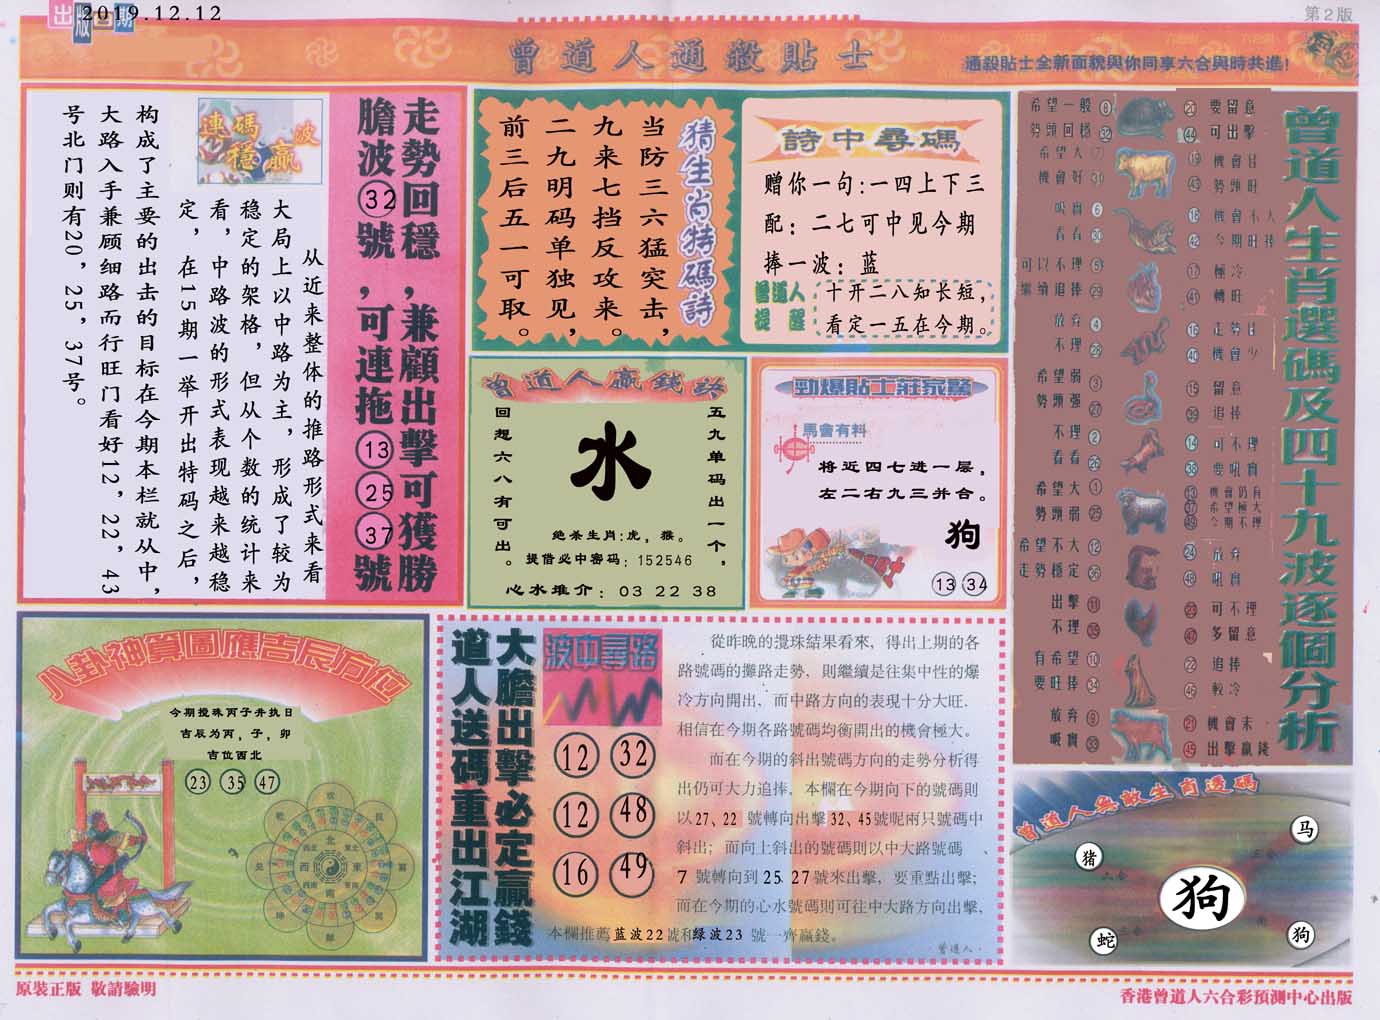 出版日期
2019.12.12
第2版
曾道人通殺貼士
通殺貼士全新面貌與你同享六合與時共進!
走勢回穩,兼顧出擊可獲勝
膽波32號,可連拖13 25 37號
連碼穩贏波
从近来整体的推路形式来看
大局上以中路为主,形成了较为
稳定的架格,但从个数的统计来
看,中路波的形式表现越来越稳
定,在15期一举开出特码之后,
构成了主要的出击的目标在今期本栏就从中,
大路入手兼顾细路而行旺门看好12,22,43
号北门则有20,25,37号。
猜生肖特碼詩
当防三六猛突击,
九来七挡反攻来。
二九明码单独见,
前三后五一可取。
詩中尋碼
赠你一句:一四上下三
配:二七可中见今期
捧一波:蓝
曾道人
提醒
十开二八知长短,
看定一五在今期。
曾道人贏錢詩
五九单码出一个,
回想六八有可出。
水
绝杀生肖:虎,猴。
提借必中密码:152546
心水推介:03 22 38
勁爆貼士莊家驚
馬會有料
将近四七进一层,
左二右九三并合。
狗
13 34
曾道人生肖選碼及四十九波逐個分析
希望一般 8
勢頭回穩 32
希望大 7
機會好 31
吸實 6
看看 30
可以不理 5
繼續追捧 29
放弃 4
不理 28
希望弱 3
勢頭强 27
不理 2
看看 26
希望大 1
勢頭弱 25
希望不大 12
走勢穩定 36
出擊 11
不理 35
有希望 10
要旺捧 34
放弃 9
吸實 33
20 要留意
44 可出擊
19 機會佳
43 勢頭旺
18 機會不大
42 今期旺捧
17 極冷
41 轉旺
16 走勢佳
40 機會少
15 留意
39 追捧
14 可不理
38 要吼實
13 機會仍有
37 希望極大
49 今期不理
24 放弃
48 吼實
23 可不理
47 多留意
22 追捧
46 較冷
21 機會未
45 出擊贏錢
八卦神算圖應吉辰方位
今期搅珠丙子井执日
吉辰为丙,子,卯
吉位西北
23 35 47
北
東
南
西
大膽出擊必定贏錢
道人送碼重出江湖
波中尋路
12 32
12 48
16 49
從昨晚的攪珠結果看來,得出上期的各
路號碼的攤路走勢,則繼續是往集中性的爆
冷方向開出,而中路方向的表現十分大旺.
相信在今期各路號碼均衡開出的機會極大。
而在今期的斜出號碼方向的走勢分析得
出仍可大力追捧,本欄在今期向下的號碼則
以27、22 號轉向出擊32、45號呢兩只號碼中
斜出;而向上斜出的號碼則以中大路號碼、
7 號轉向到25 27號來出擊,要重點出擊;
而在今期的心水號碼則可往中大路方向出擊,
本欄推薦蓝波22號和绿波23 號一齊贏錢。
曾道人.
曾道人無敵生肖透碼
马
猪
狗
蛇
狗
原裝正版 敬請驗明
香港曾道人六合彩預測中心出版